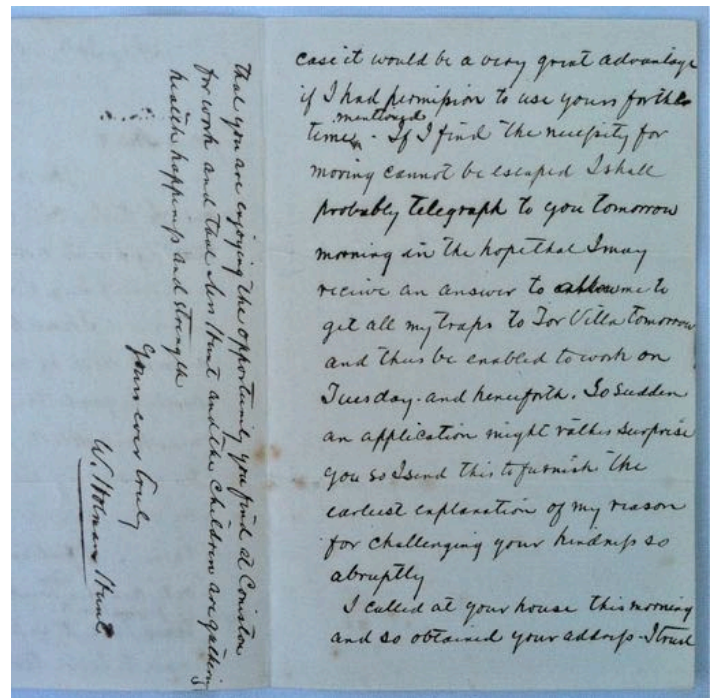 case it would be a very great advantage
if I had permission to use yours for the
mentioned
time - If I find the necessity for
moving cannot be escaped I shall
probably telegraph to you tomorrow
morning in the hope that I may
receive an answer to allow me to
get all my traps to Tor Villa tomorrow
and thus be enabled to work on
Tuesday - and henceforth. So sudden
an application might rather surprise
you so I send this to furnish the
earliest explanation of my reason
for challenging your kindness so
abruptly
I called at your house this morning
and so obtained your address - I trust
that you are enjoying the opportunity you find at Coniston
for work and that Mrs Hunt and the children are gathering
health happiness and strength
Yours ever truly
W. Holman Hunt